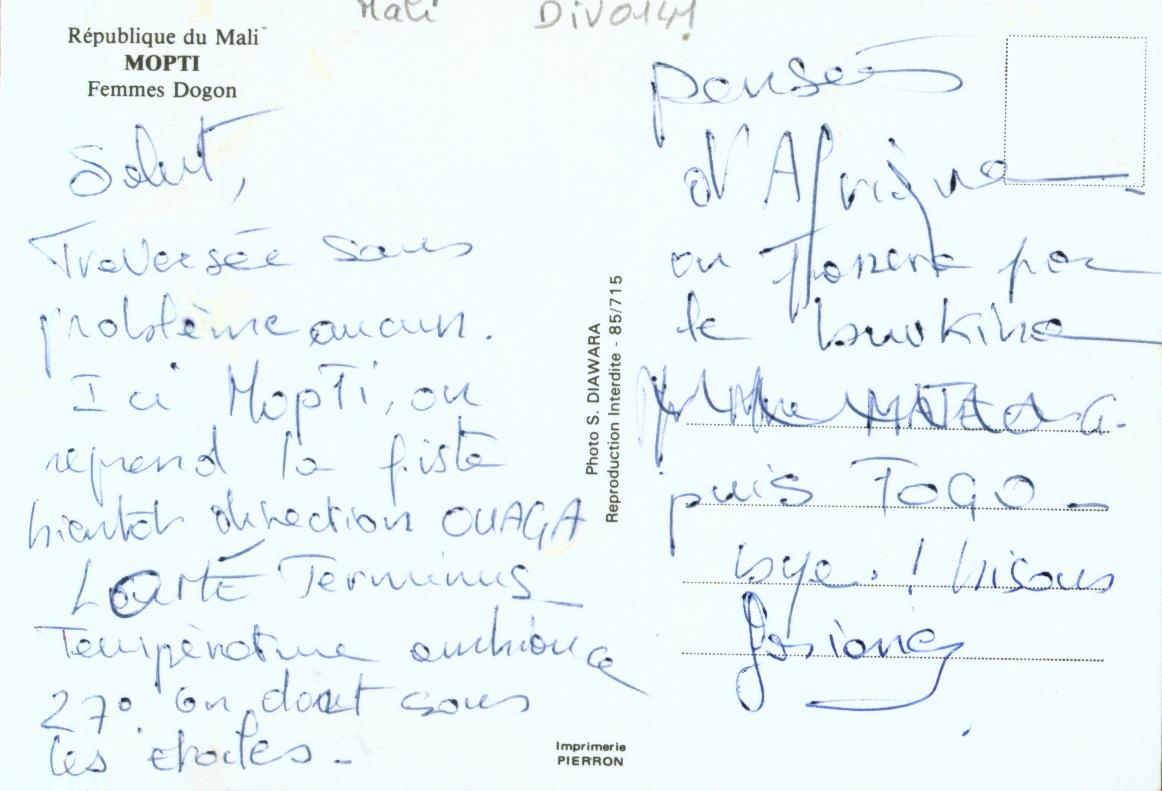 Mali DIV0141
République du Mali
MOPTI
Femmes Dogon
Salut,
Traversée sans
problème aucun.
Ici Mopti, on
reprend la piste
bientôt direction OUAGA
LOMÉ Terminus_
Température ambiance
27° on dort sous
les étoiles -
Photo S. DIAWARA
Reproduction Interdite - 85/715
Imprimerie
PIERRON
pensées
d'Afrique
on passera par
le burkina
puis TOGO -
bye.! bisous
Josiane